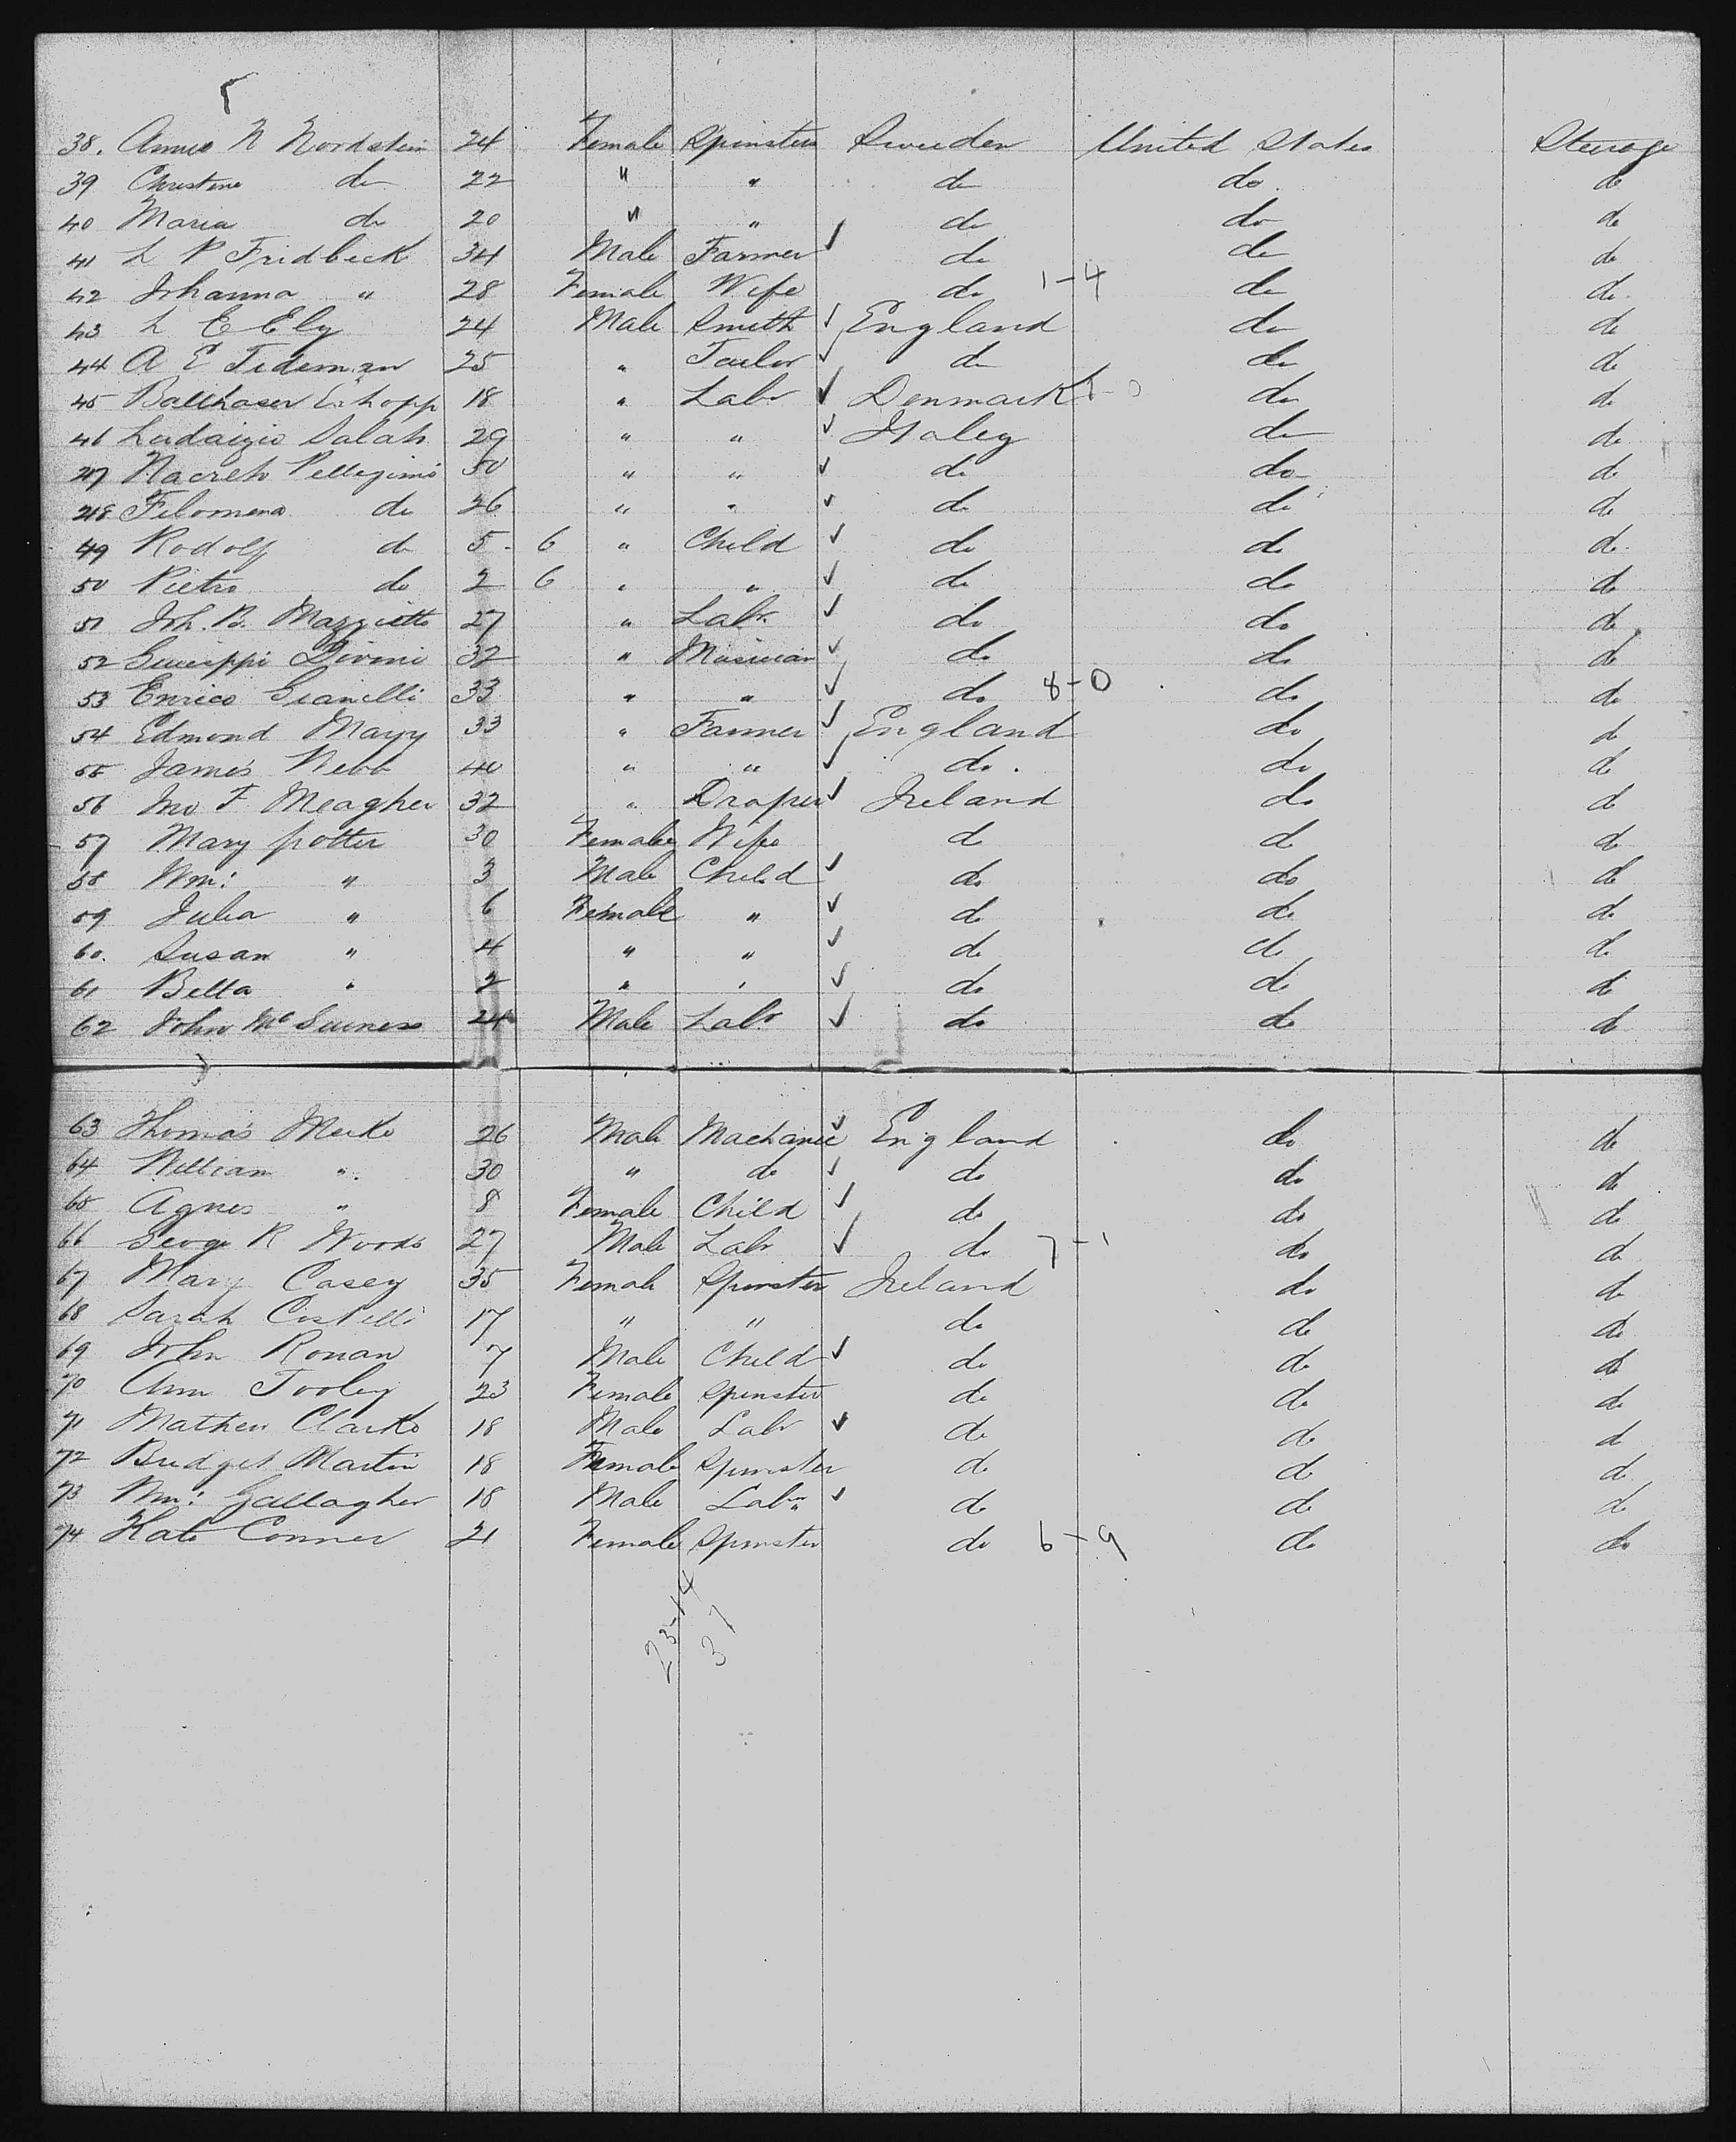 38. Annie N Nordstein 24 Female Spinster Sweden United States Steerage
39 Christine do 22 " " do do do
40 Maria do 20 " " do do do
41 L P Fridbeck 34 Male Farmer do do do
42 Johanna " 28 Female Wife do 1-4 do do
43 L E Ely 24 Male Smith England do do
44 A E Tideman 25 " Tailor do do do
45 Balthaser 18 " Labr Denmark do do
46 Salah 29 " " Italey do do
47 50 " " do do do
48 Filomena do 26 " " do do do
49 Rodolf do 5 6 " Child do do do
50 Pietro do 2 6 " " do do do
51 Joh. B. Mazziotto 27 " Labr do do do
52 Guiseppi Divini 32 " Musician do do do
53 Enrico Gianelli 33 " " do 8-0 do do
54 Edmond Mayy 33 " Farmer England do do
55 James Webb 40 " " do do do
56 Jno F Meagher 32 " Draper Ireland do do
57 Mary potter 30 Female Wife do do do
58 Wm: " 3 Male Child do do do
59 Julia " 6 Female " do do do
60. Susan " 4 " " do do do
61 Bella " 2 " " do do do
62 John Mc 24 Male Labr do do do
63 Thomas Meeke 26 Male Machanic England do do
64 William " 30 " do do do do
65 Agnes " 8 Female Child do do do
66 George R Woods 27 Male Labr do 7-1 do do
67 Mary Casey 35 Female Spinster Ireland do do
68 Sarah Costelli 17 " " do do do
69 John Ronan 7 Male Child do do do
70 Ann Tooley 23 Female Spinster do do do
71 Mathew Clarke 18 Male Labr do do do
72 Bridget Martin 18 Female Spinster do do do
73 Wm: Gallagher 18 Male Labr do do do
74 Kate Conner 21 Female Spinster do 6-9 do do
23-14
37